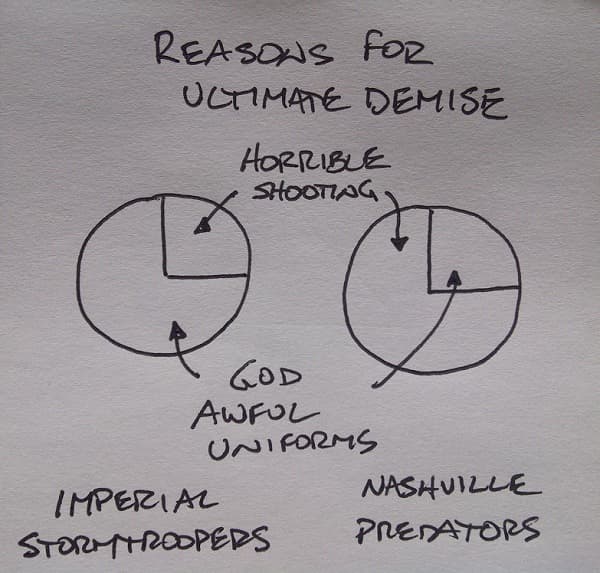 REASONS FOR
ULTIMATE DEMISE
HORRIBLE
SHOOTING
GOD
AWFUL
UNIFORMS
IMPERIAL
STORMTROOPERS
NASHVILLE
PREDATORS